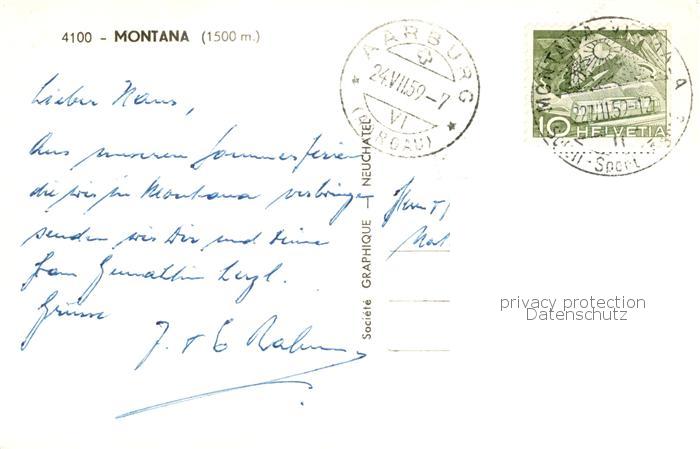 4100 - MONTANA (1500 m.)
Lieber Hans,
Aus unseren Sommerferien
die wir in Montana verbringen
senden wir Dir und Deine
Frau Gemahlin herzl.
Grüsse
J. + E
Société GRAPHIQUE — NEUCHATEL
AARBURG
24.VII.59-7
VI
(AARGAU)
MONTANA-VERMALA
10 HELVETIA
Sport
Herrn
privacy protection
Datenschutz